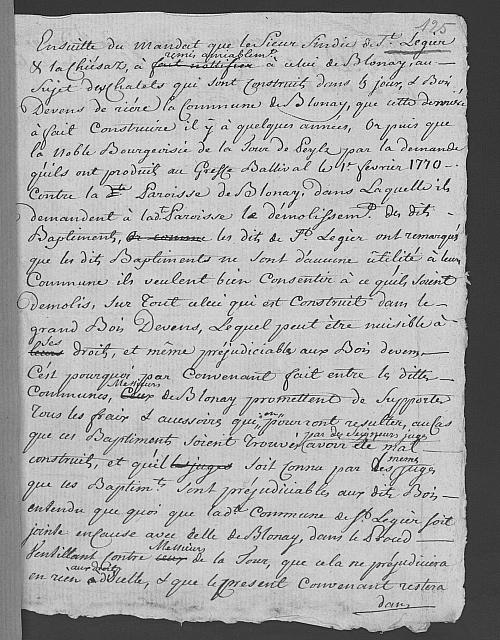 125
Ensuitte du Mandat que le Sieur Sindic de St. Legier
& la Chiésaz, à fait nottifier remis amiablemt. à celui de Blonay au
Sujet des Chalets qui sont construit dans les jour, & Bois
Devens de riére la Commune de Blonay, que cette derniére
à fait Construire il y à quelques années, Or puis que
la Noble Bourgeoisie de la Tour de Peyle par la demande
quils ont produit au Greffe Ballival le 1er fevrier 1770
Contre la dte Paroisse de Blonay, dans Laquelle ils
demandent à ladte Paroisse le demolissemt. des dits
Baptiments, or comme les dits de St. Legier ont remarqué
que les dits Baptiments ne sont d'aucune utilité à leur
Commune ils veulent bien Consentir à ce quils soient
Demolis, sur Tout celui qui est Construit dans le
grand Bois Devens, Lequel peut être nuisible à
leurs ses droits, et même préjudiciable aux Bois devens,
C'est pourquoi par Convenant fait entre les dittes
Communes, Ceux Messieurs de Blonay promettent de Supporter
Tous les fraix & accessoires qui en pourront resulter, au Cas
que ces Baptiments soient Trouver par des Seigneurs juges avoir été mal
construits, et quil les juges soit Connu par les mêmes juges
que ces Baptimts. Sont préjudiciables aux dits Bois
entendu que quoi que ladte Commune de St. Legier soit
jointe en cause avec celle de Blonay, dans le Proced
Ventillant Contre ceux Messieurs de la Tour, que cela ne préjudiciera
en rien aux droits d'icelle, & que le present Convenant restera
dans